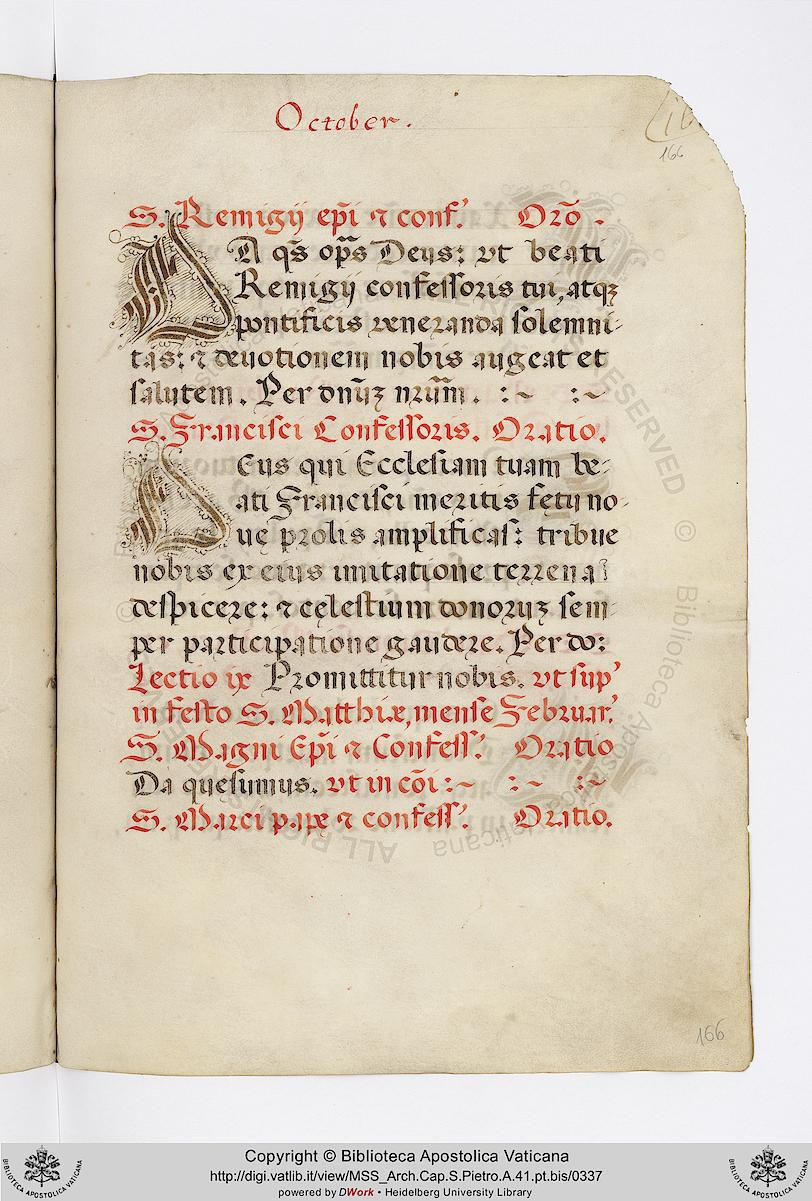 October.
166
S. Remigij ep̃i ⁊ conf.' Orõ.
DA qs̃ op̃s Deus: vt beati
Remigij confessoris tui, atqꝫ
pontificis veneranda solemni-
tas: ⁊ deuotionem nobis augeat et
salutem. Per dnũꝫ nrũm. :~ :~
S. Francisci Confessoris. Oratio.
DEus qui Ecclesiam tuam be-
ati Francisci meritis fętu no-
uę prolis amplificas: tribue
nobis ex eius imitatione terrena
despicere: ⁊ cęlestium donoruꝫ sem-
per participatione gaudere. Per do:
Lectio ix Promittitur nobis. vt sup'
in festo S. Matthiæ, mense Februar'.
S. Magni Ep̃i ⁊ Confess.' Oratio
Da quesumus. vt in cõi :~ :~ :~
S. Marci papę ⁊ confess.' Oratio.
166
Copyright © Biblioteca Apostolica Vaticana
http://digi.vatlib.it/view/MSS_Arch.Cap.S.Pietro.A.41.pt.bis/0337
powered by DWork • Heidelberg University Library